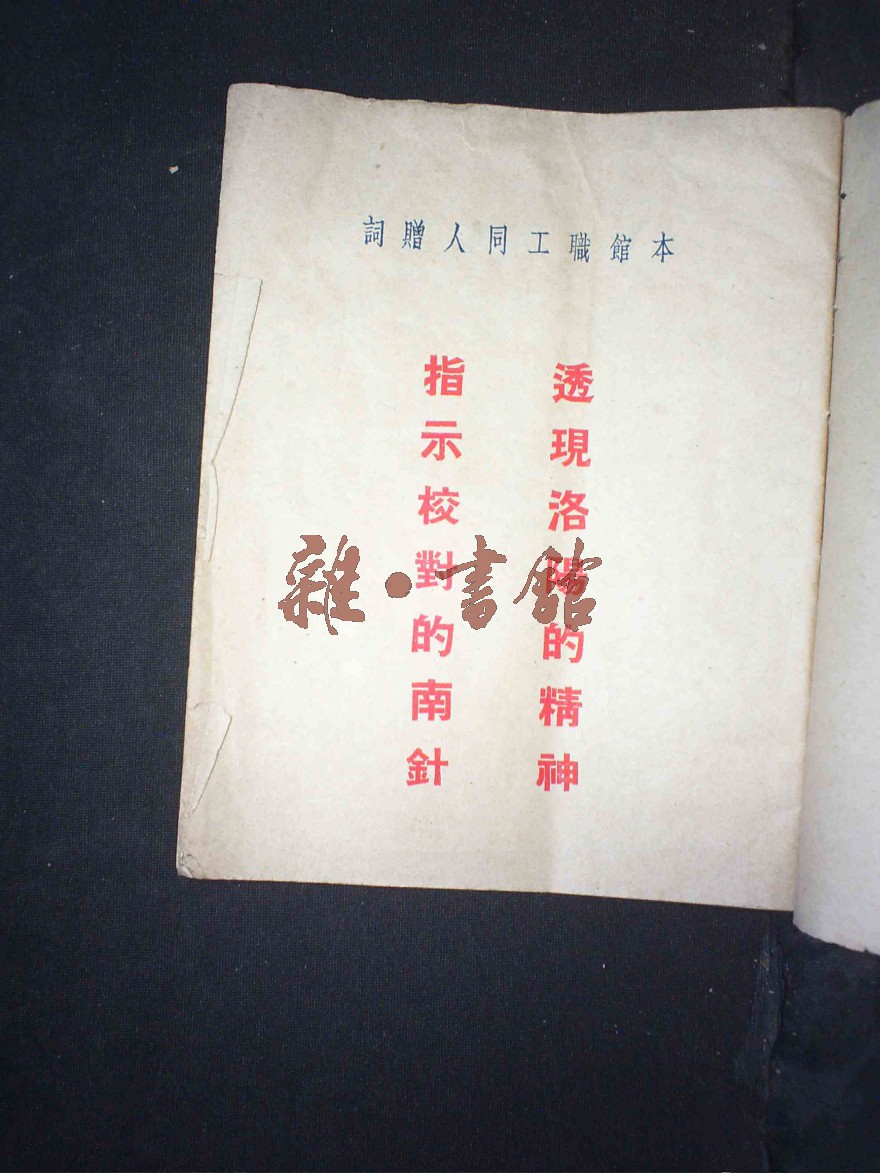 本館職工同人贈詞
透現洛陽的精神
指示校對的南針
雜·書館